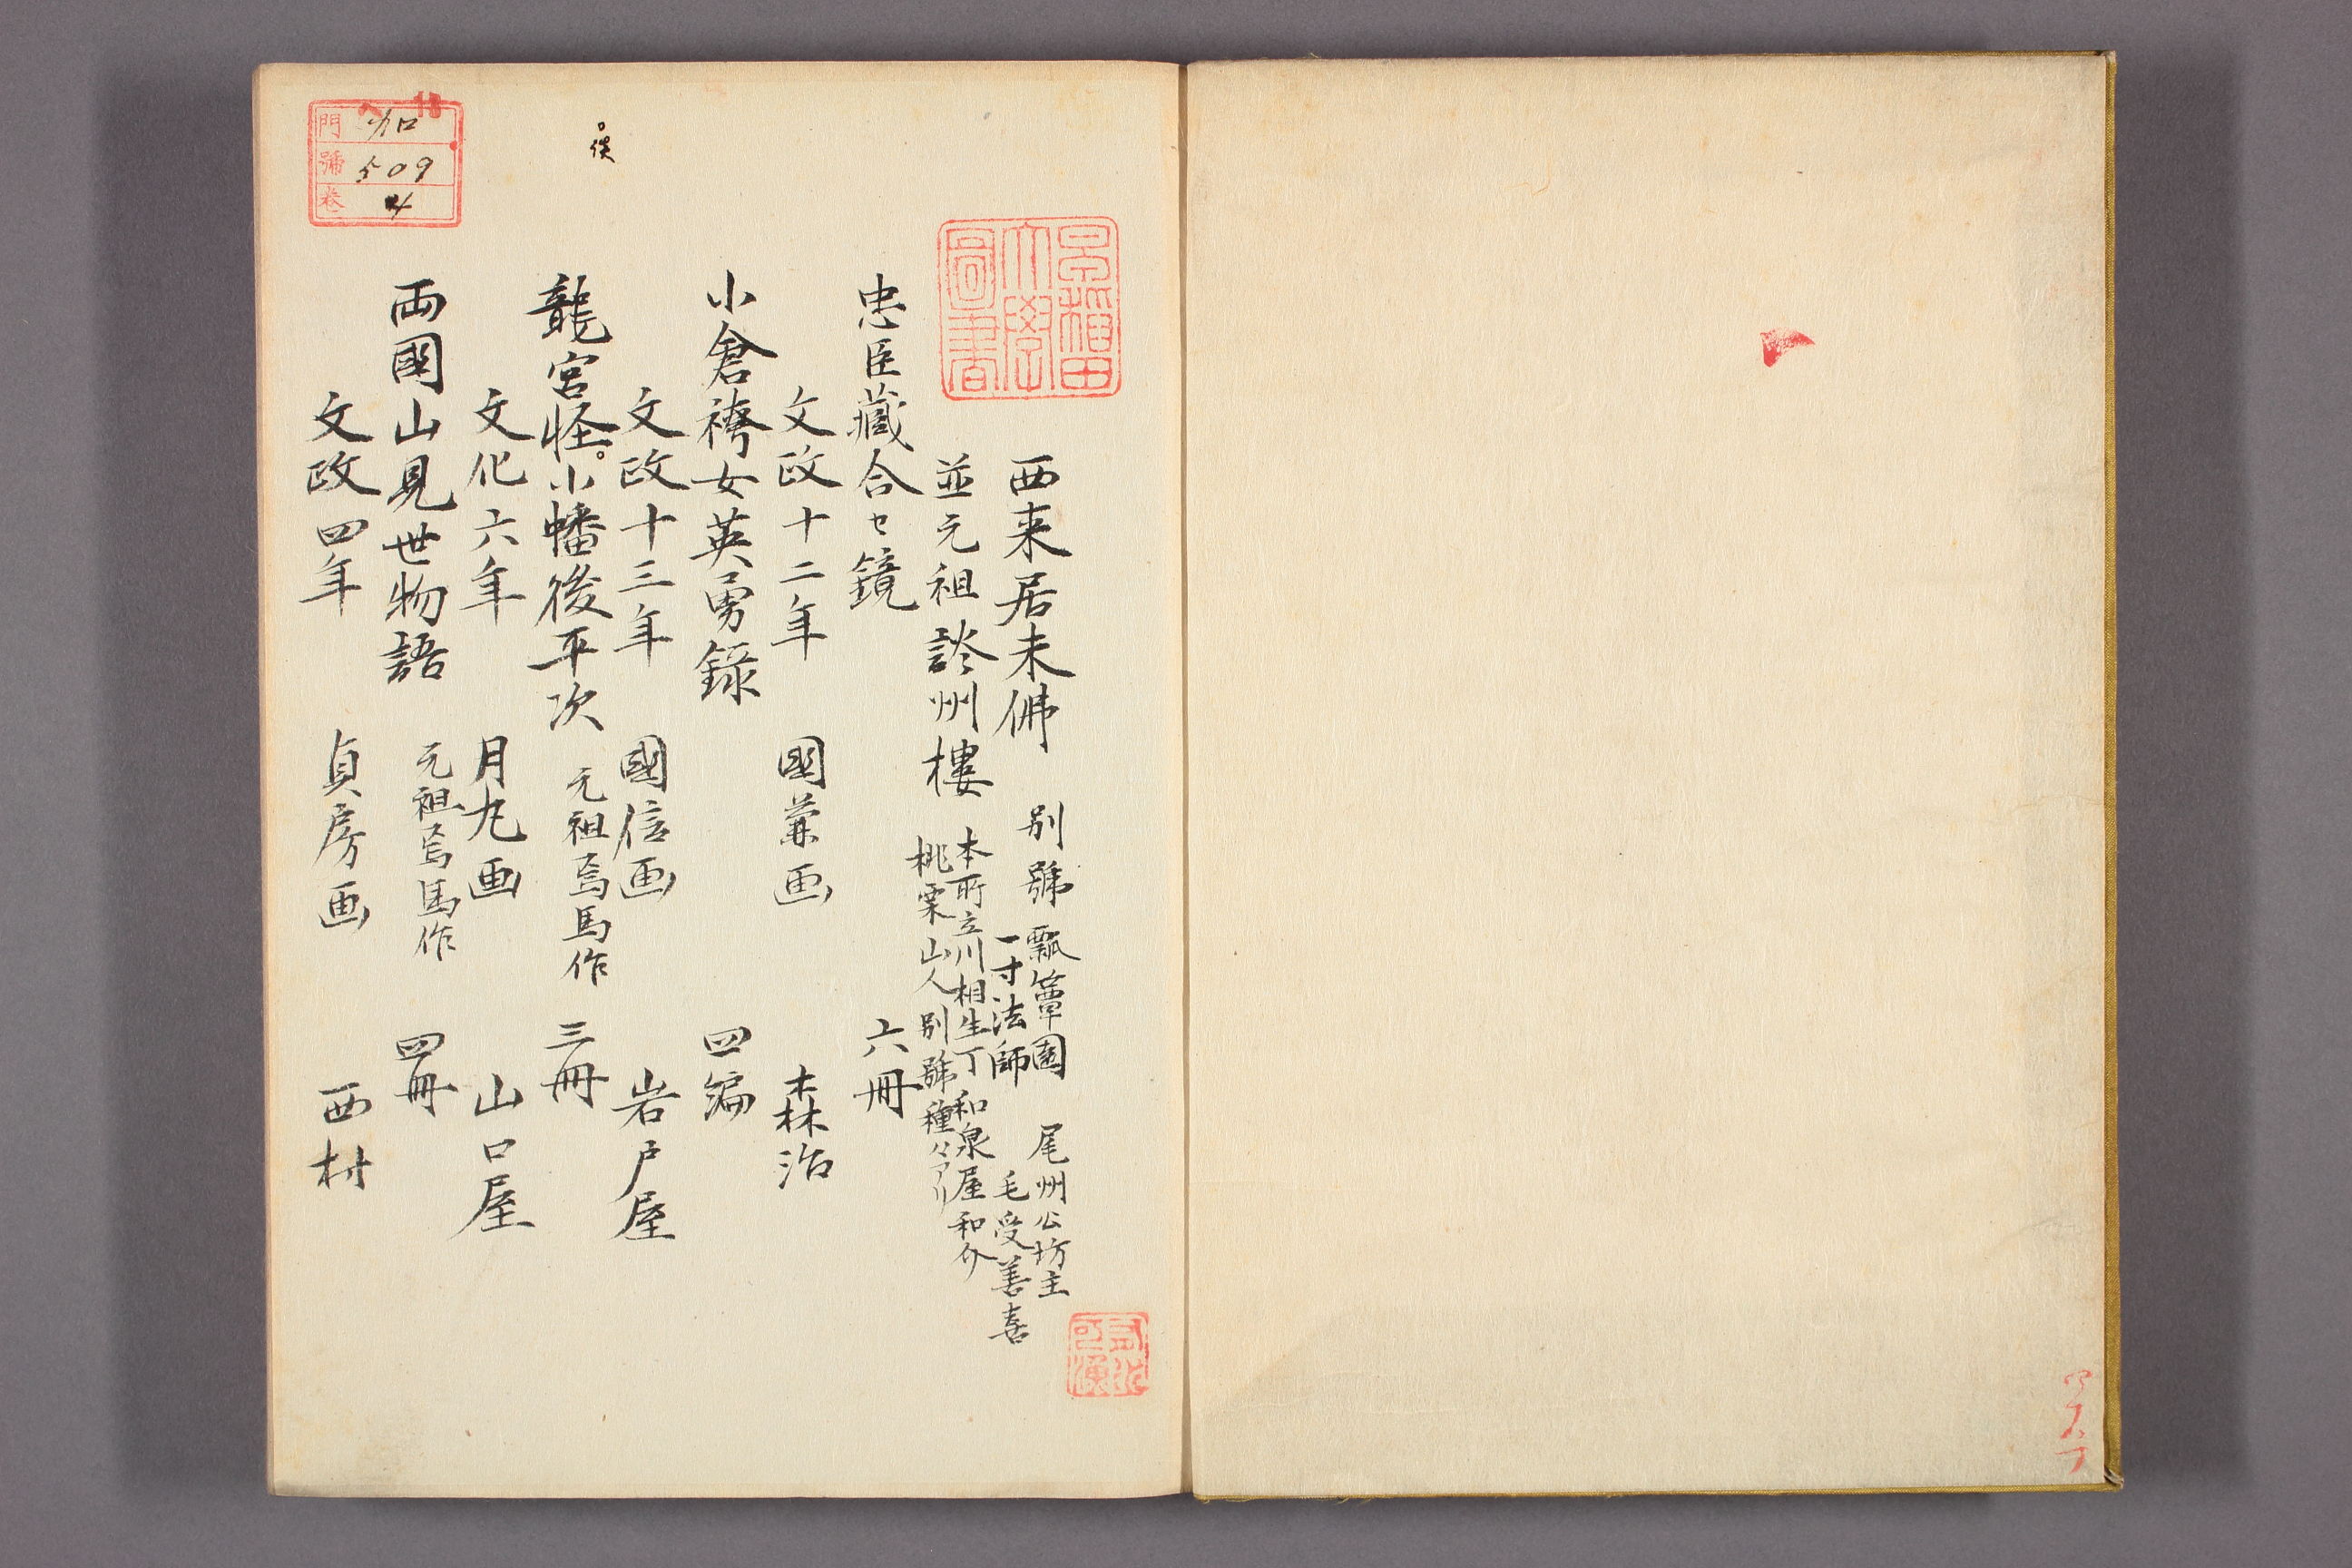 西来居未佛 別號 瓢簞園 尾州公坊主
一寸法師 毛受善喜
並元祖談州樓 本所立川相生丁 和泉屋和介
桃栗山人 別號種々アリ
忠臣藏合セ鏡 六冊
文政十二年 國兼画 森治
小倉袴女英勇錄 四編
文政十三年 國信画 岩戸屋
龍宮怪。小幡後平次 元祖焉馬作 三冊
。俣
文化六年 月丸画 山口屋
両國山見世物語 元祖焉馬作 四冊
文政四年 貞房画 西村
早稲田大學圖書
門 ヘ 13 加
號 509
卷 4